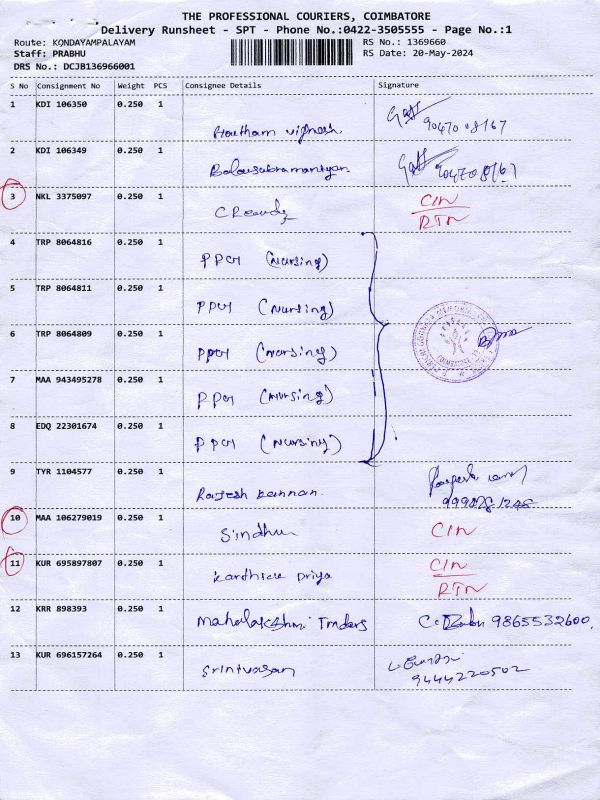 THE PROFESSIONAL COURIERS, COIMBATORE
Delivery Runsheet - SPT - Phone No.:0422-3505555 - Page No.:1
Route: KONDAYAMPALAYAM RS No.: 1369660
Staff: PRABHU RS Date: 20-May-2024
DRS No.: DCJB136966001
S No Consignment No Weight PCS Consignee Details Signature
1 KDI 106350 0.250 1
Hautham vighnesh 90470 08167
2 KDI 106349 0.250 1
Balasubramaniyan 90470 8167
3 NKL 3375097 0.250 1 CIN
RTN
4 TRP 8064816 0.250 1
PPCM (Nursing)
5 TRP 8064811 0.250 1
PPCM (Nursing)
6 TRP 8064809 0.250 1
PPCM (Nursing)
7 MAA 943495278 0.250 1
PPCM (Nursing)
8 EDQ 22301674 0.250 1
PPCM (Nursing)
9 TYR 1104577 0.250 1
Rajesh kannan
10 MAA 106279019 0.250 1
Sindhu CIN
11 KUR 695897807 0.250 1 CIN
Karthica Priya RTN
12 KRR 898393 0.250 1
Mahalakshmi Traders 9865532600
13 KUR 696157264 0.250 1
Srinivasan 9444220502